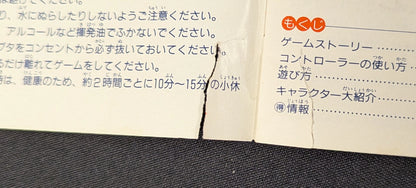 り、水にぬらしたりしないようご注意ください。
アルコールなど揮発油でふかないでください。
プタをコンセントから必ず抜いておいてください。
るだけ離れてゲームをしてください。
は、健康のため、約2時間ごとに10分～15分の小休
もくじ
ゲームストーリー
コントローラーの使い方
遊び方
キャラクター大紹介
得情報